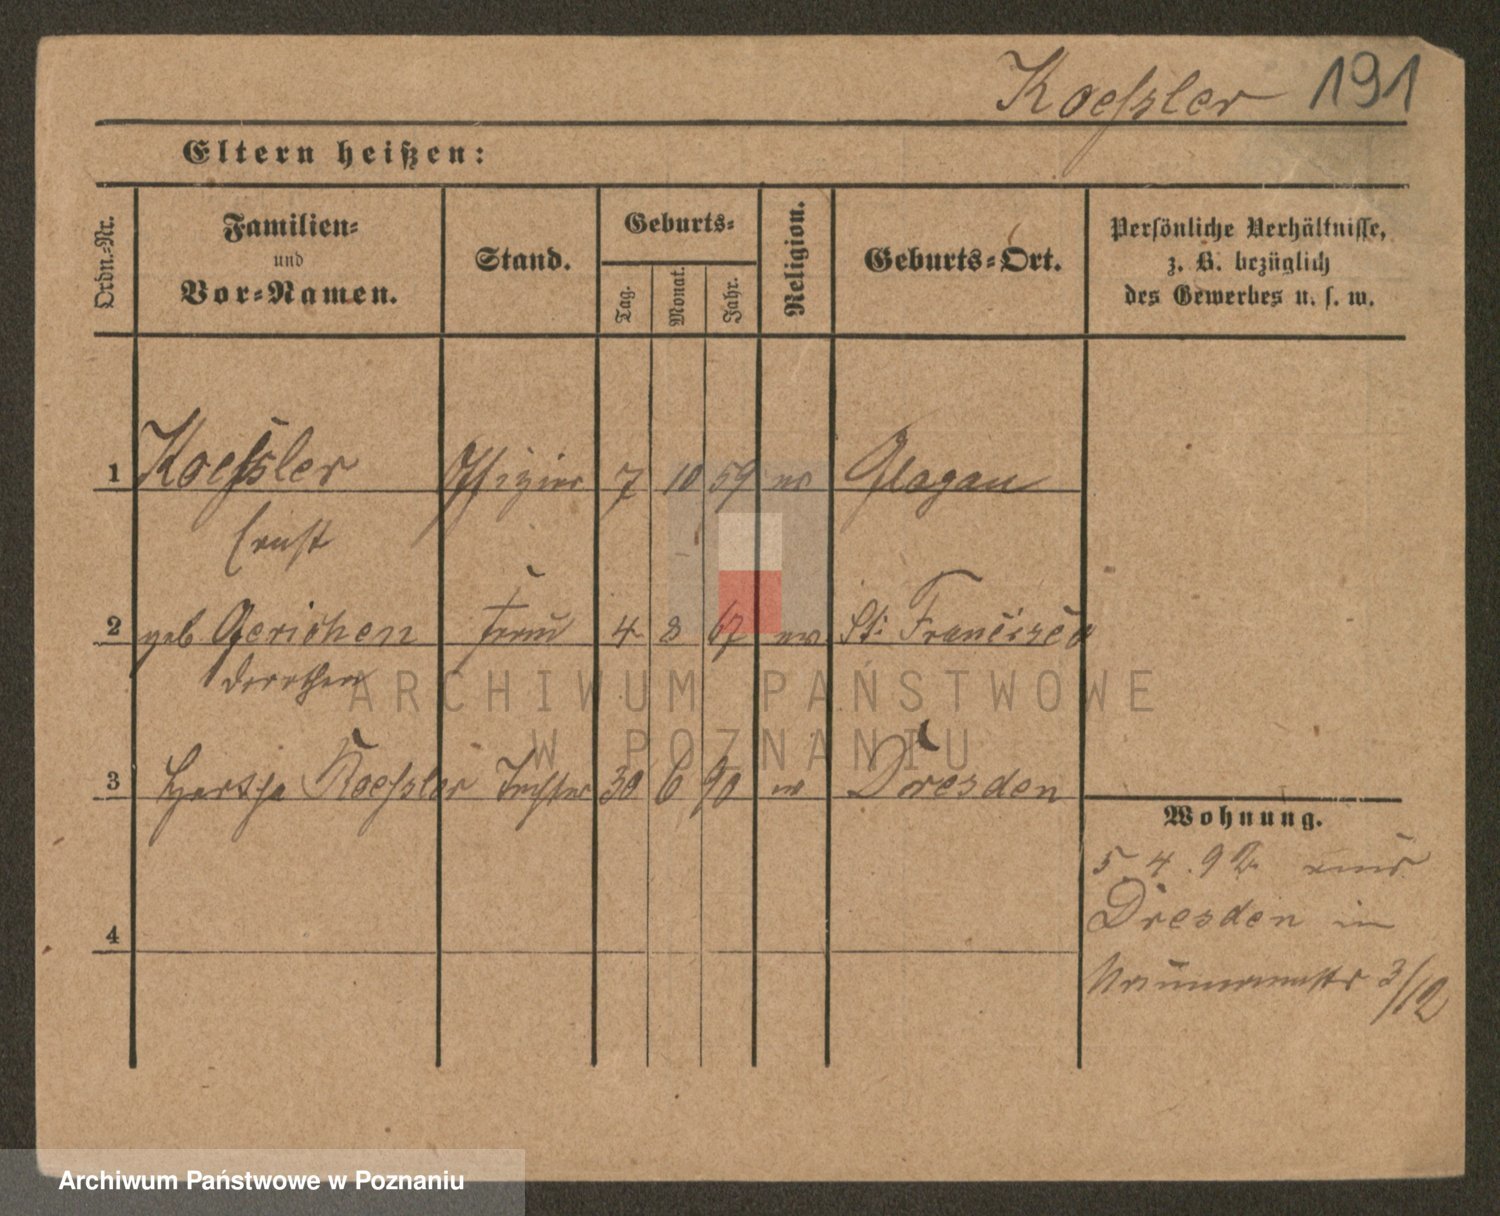 Koeßler 191
Eltern heißen:
Ordn.-Nr.
Familien-
und
Vor-Namen.
Stand.
Geburts-
Tag.
Monat.
Jahr.
Religion.
Geburts-Ort.
Persönliche Verhältnisse,
z. B. bezüglich
des Gewerbes u. s. w.
1 Koeßler Offizier 7 10 59 ev Glogau
Ernst
2 geb Gerichen Frau 4 8 67 ev St. Francisco
Dorothea
3 Hertha Koeßler Tochter 30 6 90 ev Dresden
4
Wohnung.
5. 4. 92 aus
Dresden in
Naumannstr 3/12
ARCHIWUM PAŃSTWOWE
W POZNANIU
Archiwum Państwowe w Poznaniu